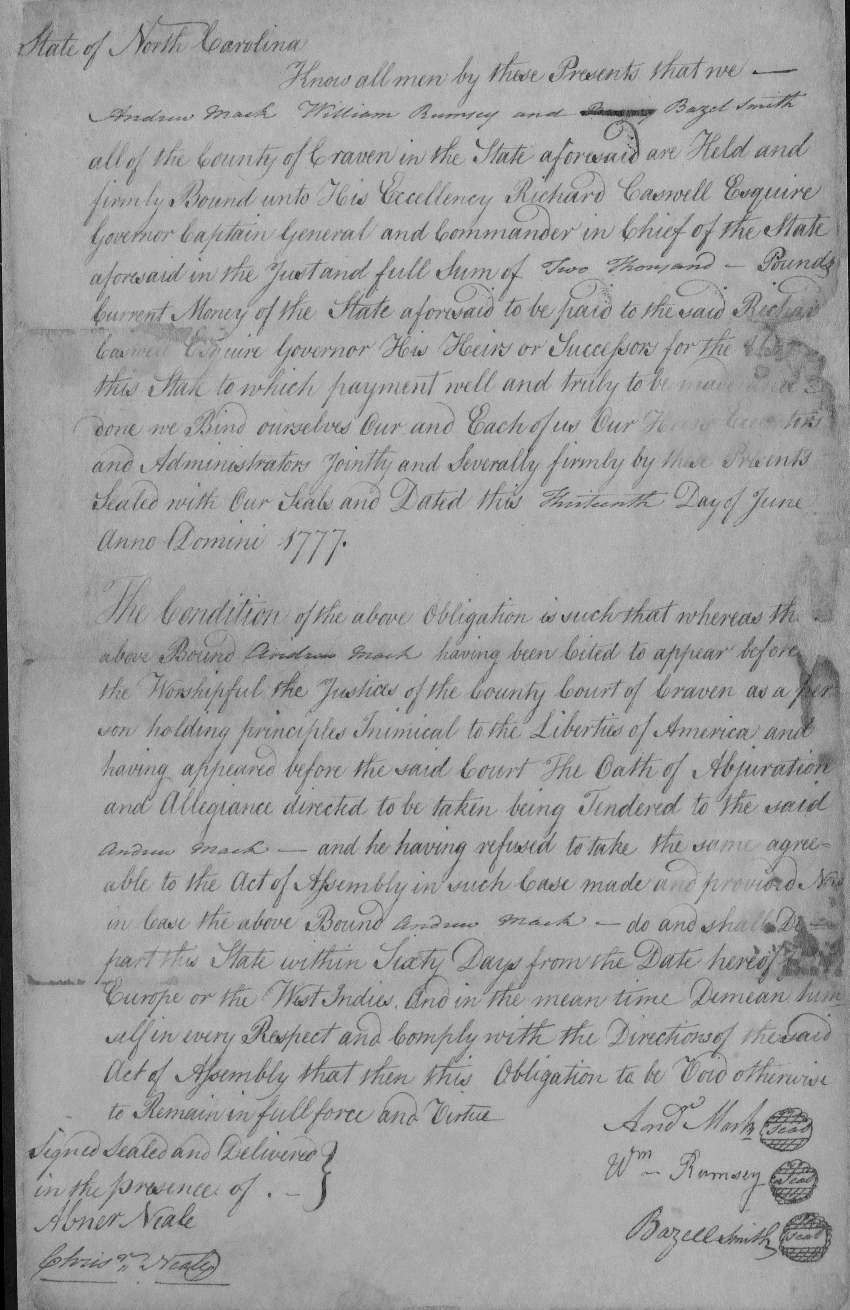 State of North Carolina
Know all men by these Presents that we —
Andrew Mack William Rumsey and Bazel Smith
all of the County of Craven in the State aforesaid are Held and
firmly Bound unto His Eccellency Richard Caswell Esquire
Governor Captain General and Commander in Chief of the State
aforesaid in the Just and full Sum of Two Thousand — Pounds
Current Money of the State aforesaid to be paid to the said Richard
Caswell Esquire Governor His Heirs or Successors for the
this State to which payment well and truly to be made and
done we Bind ourselves Our and Each of us Our Heirs Executors
and Administrators Jointly and Severally firmly by these Presents
Sealed with Our Seals and Dated this Thirteenth Day of June
Anno Domini 1777.
The Condition of the above Obligation is such that whereas the
above Bound Andrew Mack having been Cited to appear before
the Worshipful the Justices of the County Court of Craven as a per
son holding principles Inimical to the Liberties of America and
having appeared before the said Court The Oath of Abjuration
and Allegiance directed to be taken being Tendered to the said
Andrew Mack — and he having refused to take the same agree=
able to the Act of Assembly in such Case made and provided Now
in Case the above Bound Andrew Mack — do and shall De
part this State within Sixty Days from the Date hereof
Europe or the West Indies. And in the mean time Demean him
self in every Respect and Comply with the Directions of the said
Act of Assembly that then this Obligation to be Void otherwise
to Remain in full force and Virtue
Signed Sealed and Delivered
in the presence of . —
Abner Neale
Chrisr. Neale
Andr Mack Seal
Wm Rumsey Seal
Bazell Smith Seal